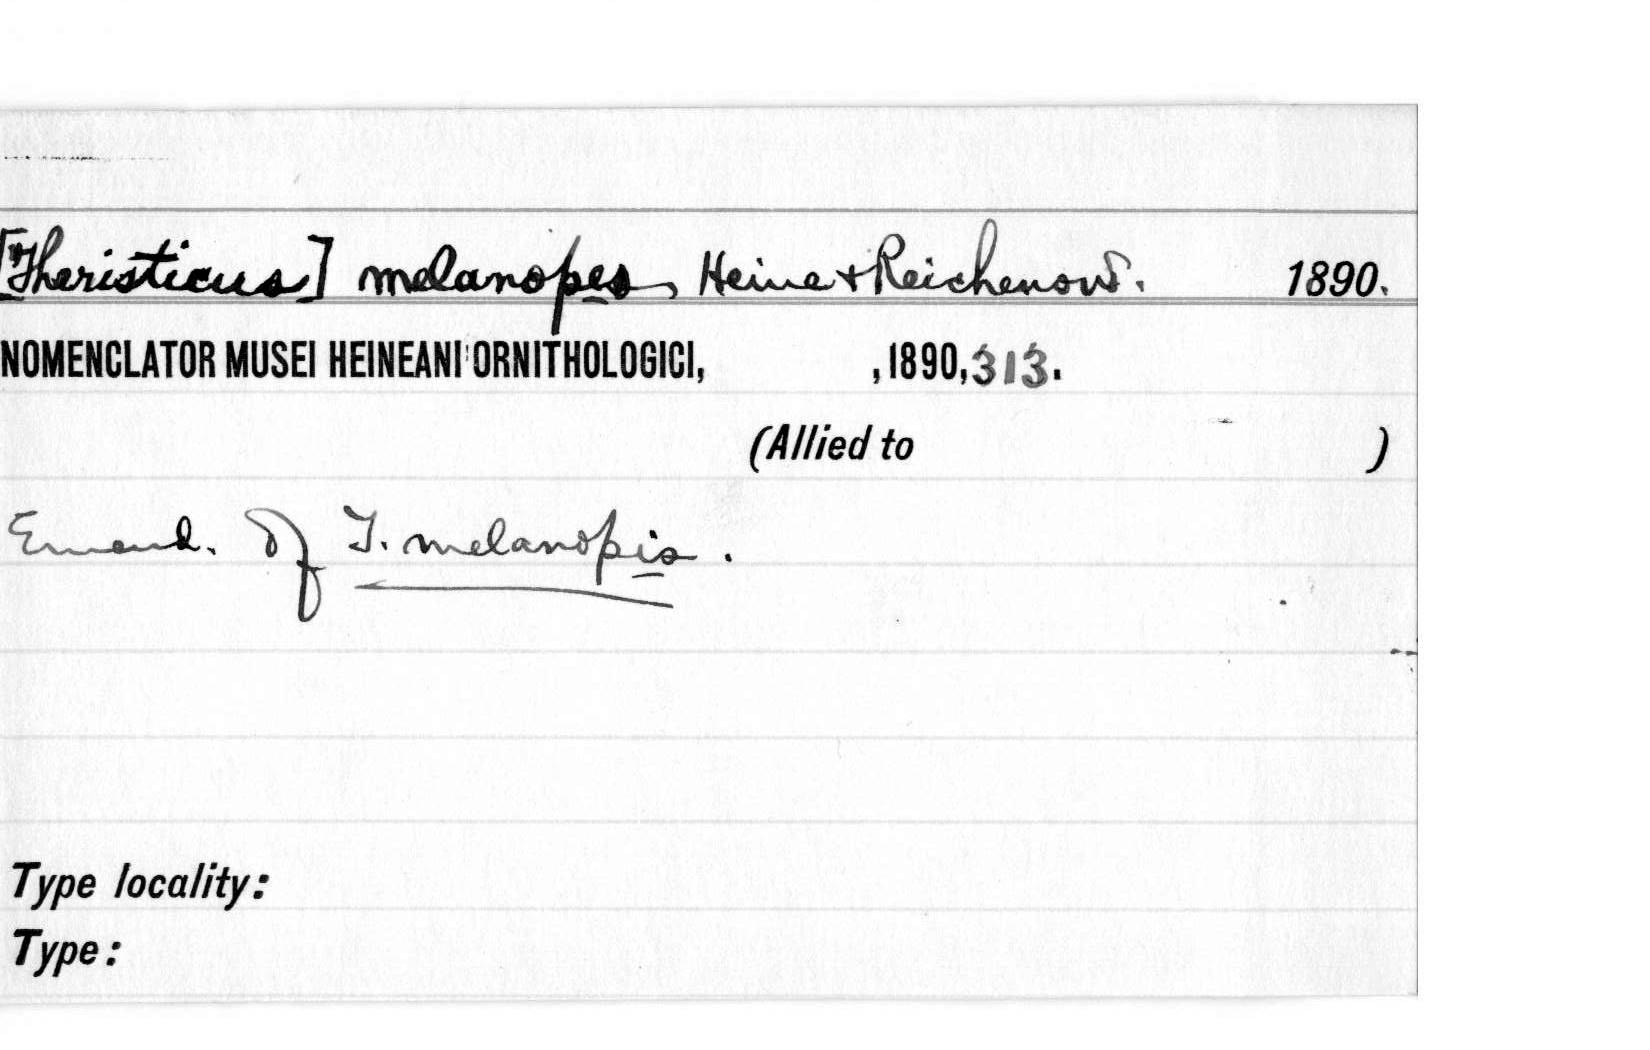 [Theristicus] melanopes, Heine & Reichenow. 1890.
NOMENCLATOR MUSEI HEINEANI ORNITHOLOGICI, ,1890,313.
(Allied to )
Emend. of T. melanopis.
Type locality:
Type: